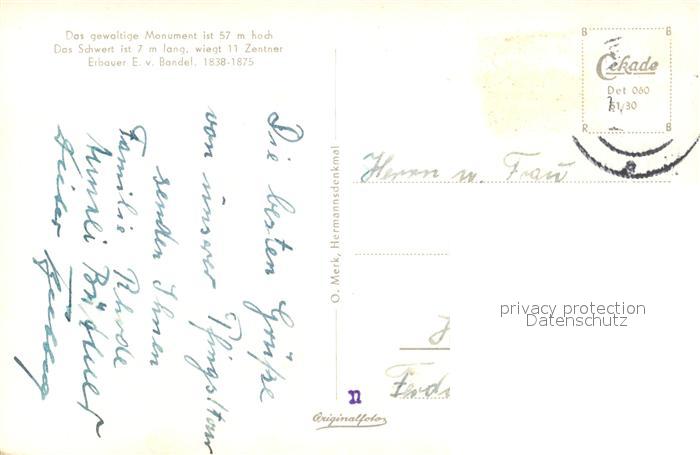 Das gewaltige Monument ist 57 m hoch
Das Schwert ist 7 m lang, wiegt 11 Zentner
Erbauer E. v. Bandel. 1838-1875
B B
Cekade
Det 060
61/30
R B
Die besten Grüße
von unserer Pfingsttour
senden Ihnen
Familie Rhode
O. Merk, Hermannsdenkmal
Herrn u. Frau
privacy protection
Datenschutz
n
Originalfoto